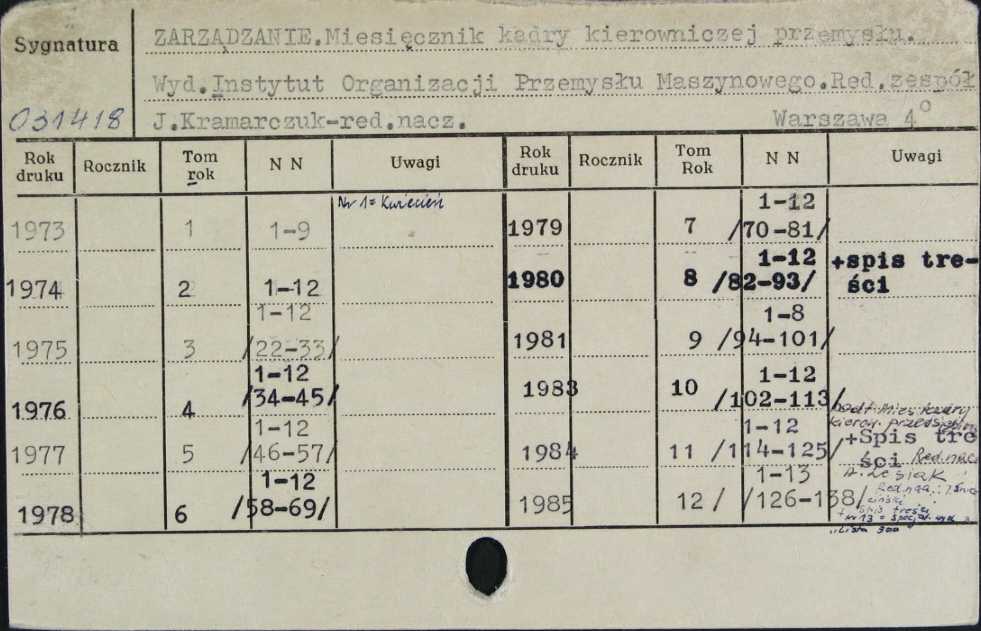 Sygnatura
ZARZĄDZANIE.Miesięcznik kadry kierowniczej przemysłu.
Wyd.Instytut Organizacji Przemysłu Maszynowego.Red.zespół
031418 J.Kramarczuk-red.nacz. Warszawa 4°
Rok druku Rocznik Tom rok N N Uwagi Rok druku Rocznik Tom Rok N N Uwagi
1973 1 1-9 Nr 1 = Kwiecień
1974 2 1-12
1975 3 1-12 /22-33/
1976 4 1-12 /34-45/
1977 5 1-12 /46-57/
1978 6 1-12 /58-69/
1979 7 1-12 /70-81/
1980 8 1-12 /82-93/ +spis tre-
ści
1981 9 1-8 /94-101/
1983 10 1-12 /102-113/
podt. Mies. kadry
kierow. przedsięb.
1984 11 1-12 /114-125/ +Spis tre
ści Red.nacz
A. Lesiak
1985 12 / 1-13 /126-138/ Red.nacz.
+ Spis treści
+ nr 13 = specjal. wyd.
"Lista 300